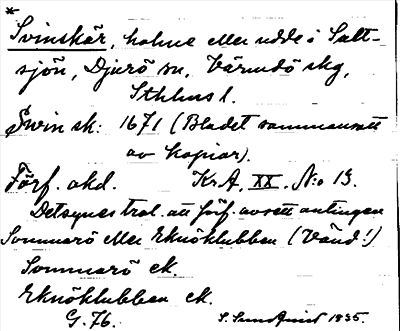 *
Svinskär, holme eller udde i Salt-
sjön, Djurö sn, Värmdö skg,
Sthlms l.
Swin sk: 1671 (Bladet sammansatt
av kopior).
Förf. okd. Kr.A. XX. N:o 13.
Det synes trol. att förf. avsett antingen
Sommarö eller Eknöklubben (Vänd!)
Sommarö ek.
Eknöklubben ek.
G. 76. S. Sundquist 1935.